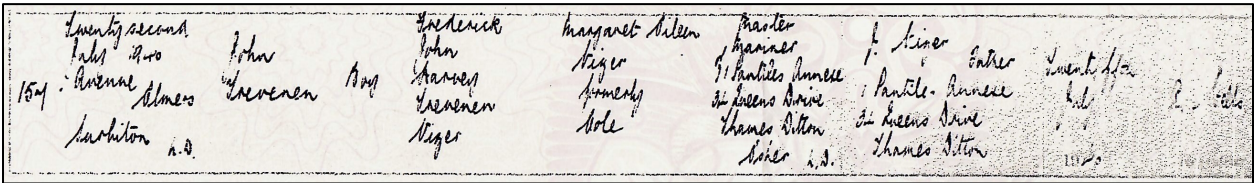 Twenty second
July 19
Avenue Elmers
Surbiton R.D.
John
Trevenen
Boy
Frederick
John
Harvey
Trevenen
Niger
Margaret Eileen
Niger
formerly
Cole
Master
Mariner
1 Pantiles Annexe
34 Queens Drive
Thames Ditton
Esher R.D.
J. Niger
Father
1 Pantile- Annexe
34 Queens Drive
Thames Ditton
Twenty
July